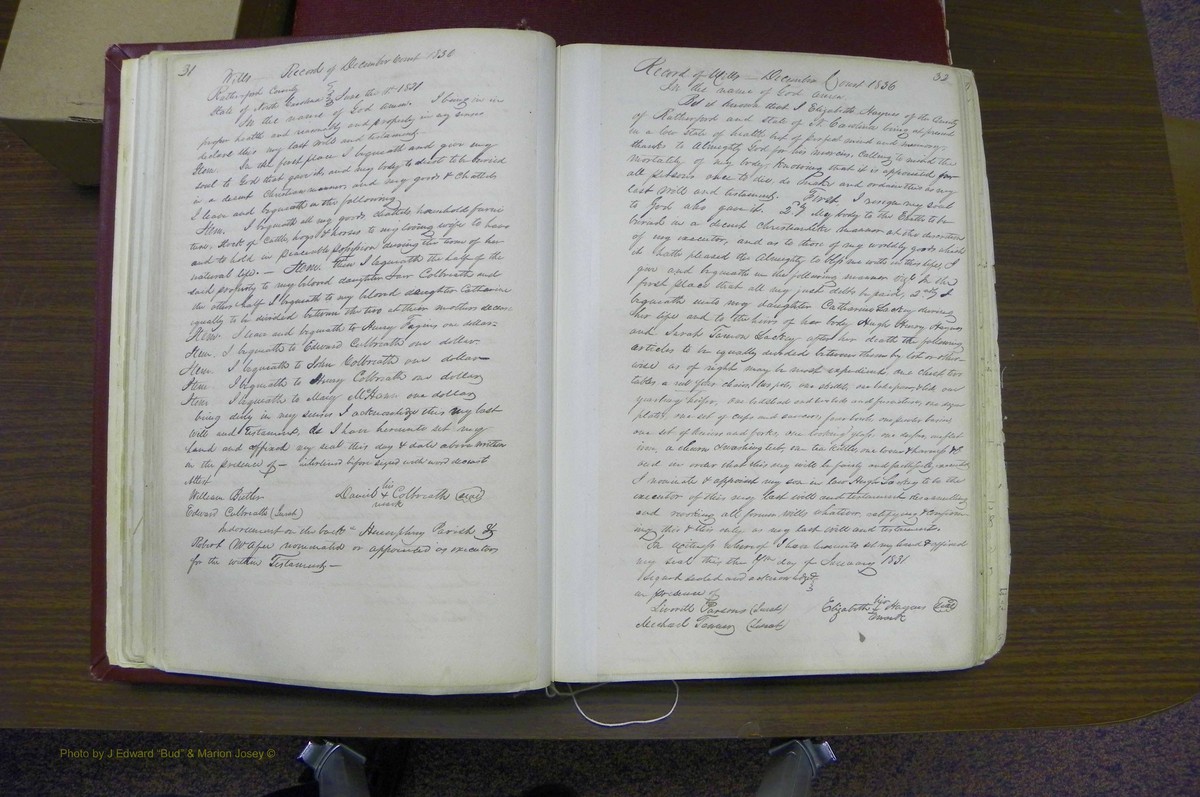 31
Wills — Record of December Court 1836
Rutherford County
State of North Carolina June the 11th 1821
In the name of God amen. I being in in
proper health and memory and property in my sences
declare this my last will and testament
Item. In the first place I bequeath and give my
soul to God that gave it, and my body to desest to be buried
in a decent Christian manner, and my goods & Chattels
I leave and bequeath in the following
Item. I bequeath all my goods chattels household furni
ture, Stock of Cattle, hogs & horses to my loving wife to have
and to hold in peaceable possession during the term of her
natural life. — Item. then I bequeath the half of the
said property to my beloved daughter Colbreath and
the other half I bequeath to my beloved daughter Catharine
equally to be divided between the two at their mothers decease
Item. I leave and bequeath to Henry one dollar
Item. I bequeath to Edward Colbreath one dollar
Item. I bequeath to John Colbreath one dollar
Item I bequeath to Henry Colbreath one dollar
Item I bequeath to Mary one dollar
being duly in my sences I acknowledge this my last
will and Testament, As I have hereunto set my
hand and affixed my seal this day & date above written
in the presence of — interlined before signed with word decent
Attest
William
Edward Colbreath (Jurat)
Daniel his + mark Colbreath (seal)
Indorsement on the back " Humphrey Parish &
Robert McAfee nominated or appointed as executors
for the within Testament —
32
Record of Wills — December Court 1836
In the name of God amen
Be it known that I Elizabeth Haynes of the County
of Rutherford and State of N. Carolina being at present
in a low State of health but of proper mind and memory,
thanks to Almighty God for his mercies, Calling to mind the
mortality of my body, knowing that it is appointed for
all persons once to die, do make and ordain this as my
last will and testament. First, I resign my soul
to God who gave it. 2dly My body to the Earth to be
buried in a decent christian like manner at the discretion
of my executor, and as to those of my worldly goods which
it hath pleased the Almighty to bless me with in this life, I
give and bequeath in the following manner viz. In the
first place that all my just debts be paid, 2ndly I
bequeath unto my daughter Catharine Lackey during
her life and to the heirs of her body Hugh Henry Haynes
and Sarah Lackey after her death the following
articles to be equally divided between them by lot or other
wise as of right may be most expedient. one chest two
tables a set of chairs, two pots, one skillet, one
yearling heifer, one bedstead and bed and furniture, one sugar
plate, one set of cups and saucers, five bowls, one pewter basin
one set of knives and forks, one looking glass, one
iron, a churn & washing tub, one tea kettle, one
and in order that this my will be justly and faithfully executed
I nominate & appoint my son in law Hugh Lackey to be the
executor of this my last will and testament
and revoking all former wills whatever, ratifying & confirm
ing this & this only as my last will and testament.
In witness whereof I have hereunto set my hand & affixed
my seal this the day of January 1831
Signed sealed and acknowledged
in presence of
Parsons (Jurat)
Michael (Jurat)
Elizabeth her + mark Haynes (seal)
Photo by J Edward "Bud" & Marion Josey ©